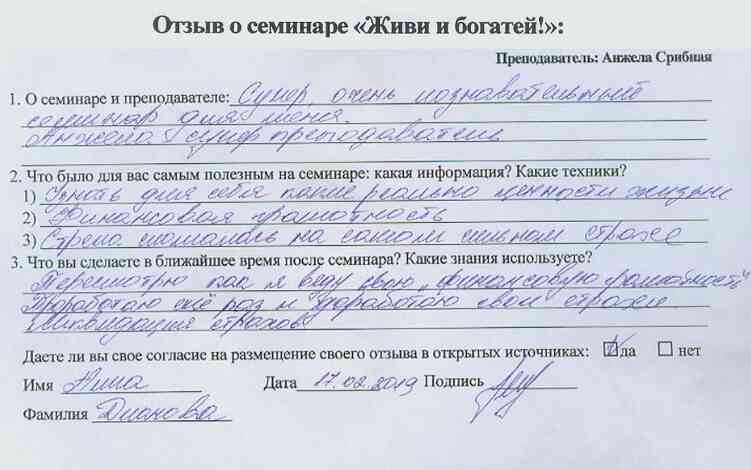 Отзыв о семинаре «Живи и богатей!»:
Преподаватель: Анжела Срибная
1. О семинаре и преподавателе: Супер, очень познавательный
семинар для меня.
Анжела супер преподаватель
2. Что было для вас самым полезным на семинаре: какая информация? Какие техники?
1) Узнать для себя какие реально ценности жизни
2) Финансовая грамотность
3) Стрела сломалась на самом сильном страхе
3. Что вы сделаете в ближайшее время после семинара? Какие знания используете?
Пересмотрю как я веду свою "финансовую грамотность"
Проработаю ещё раз и доработаю свои страхи.
Ликвидация страхов
Даете ли вы свое согласие на размещение своего отзыва в открытых источниках: ☑ да ☐ нет
Имя Нина Дата 17.02.2019 Подпись
Фамилия Дианова